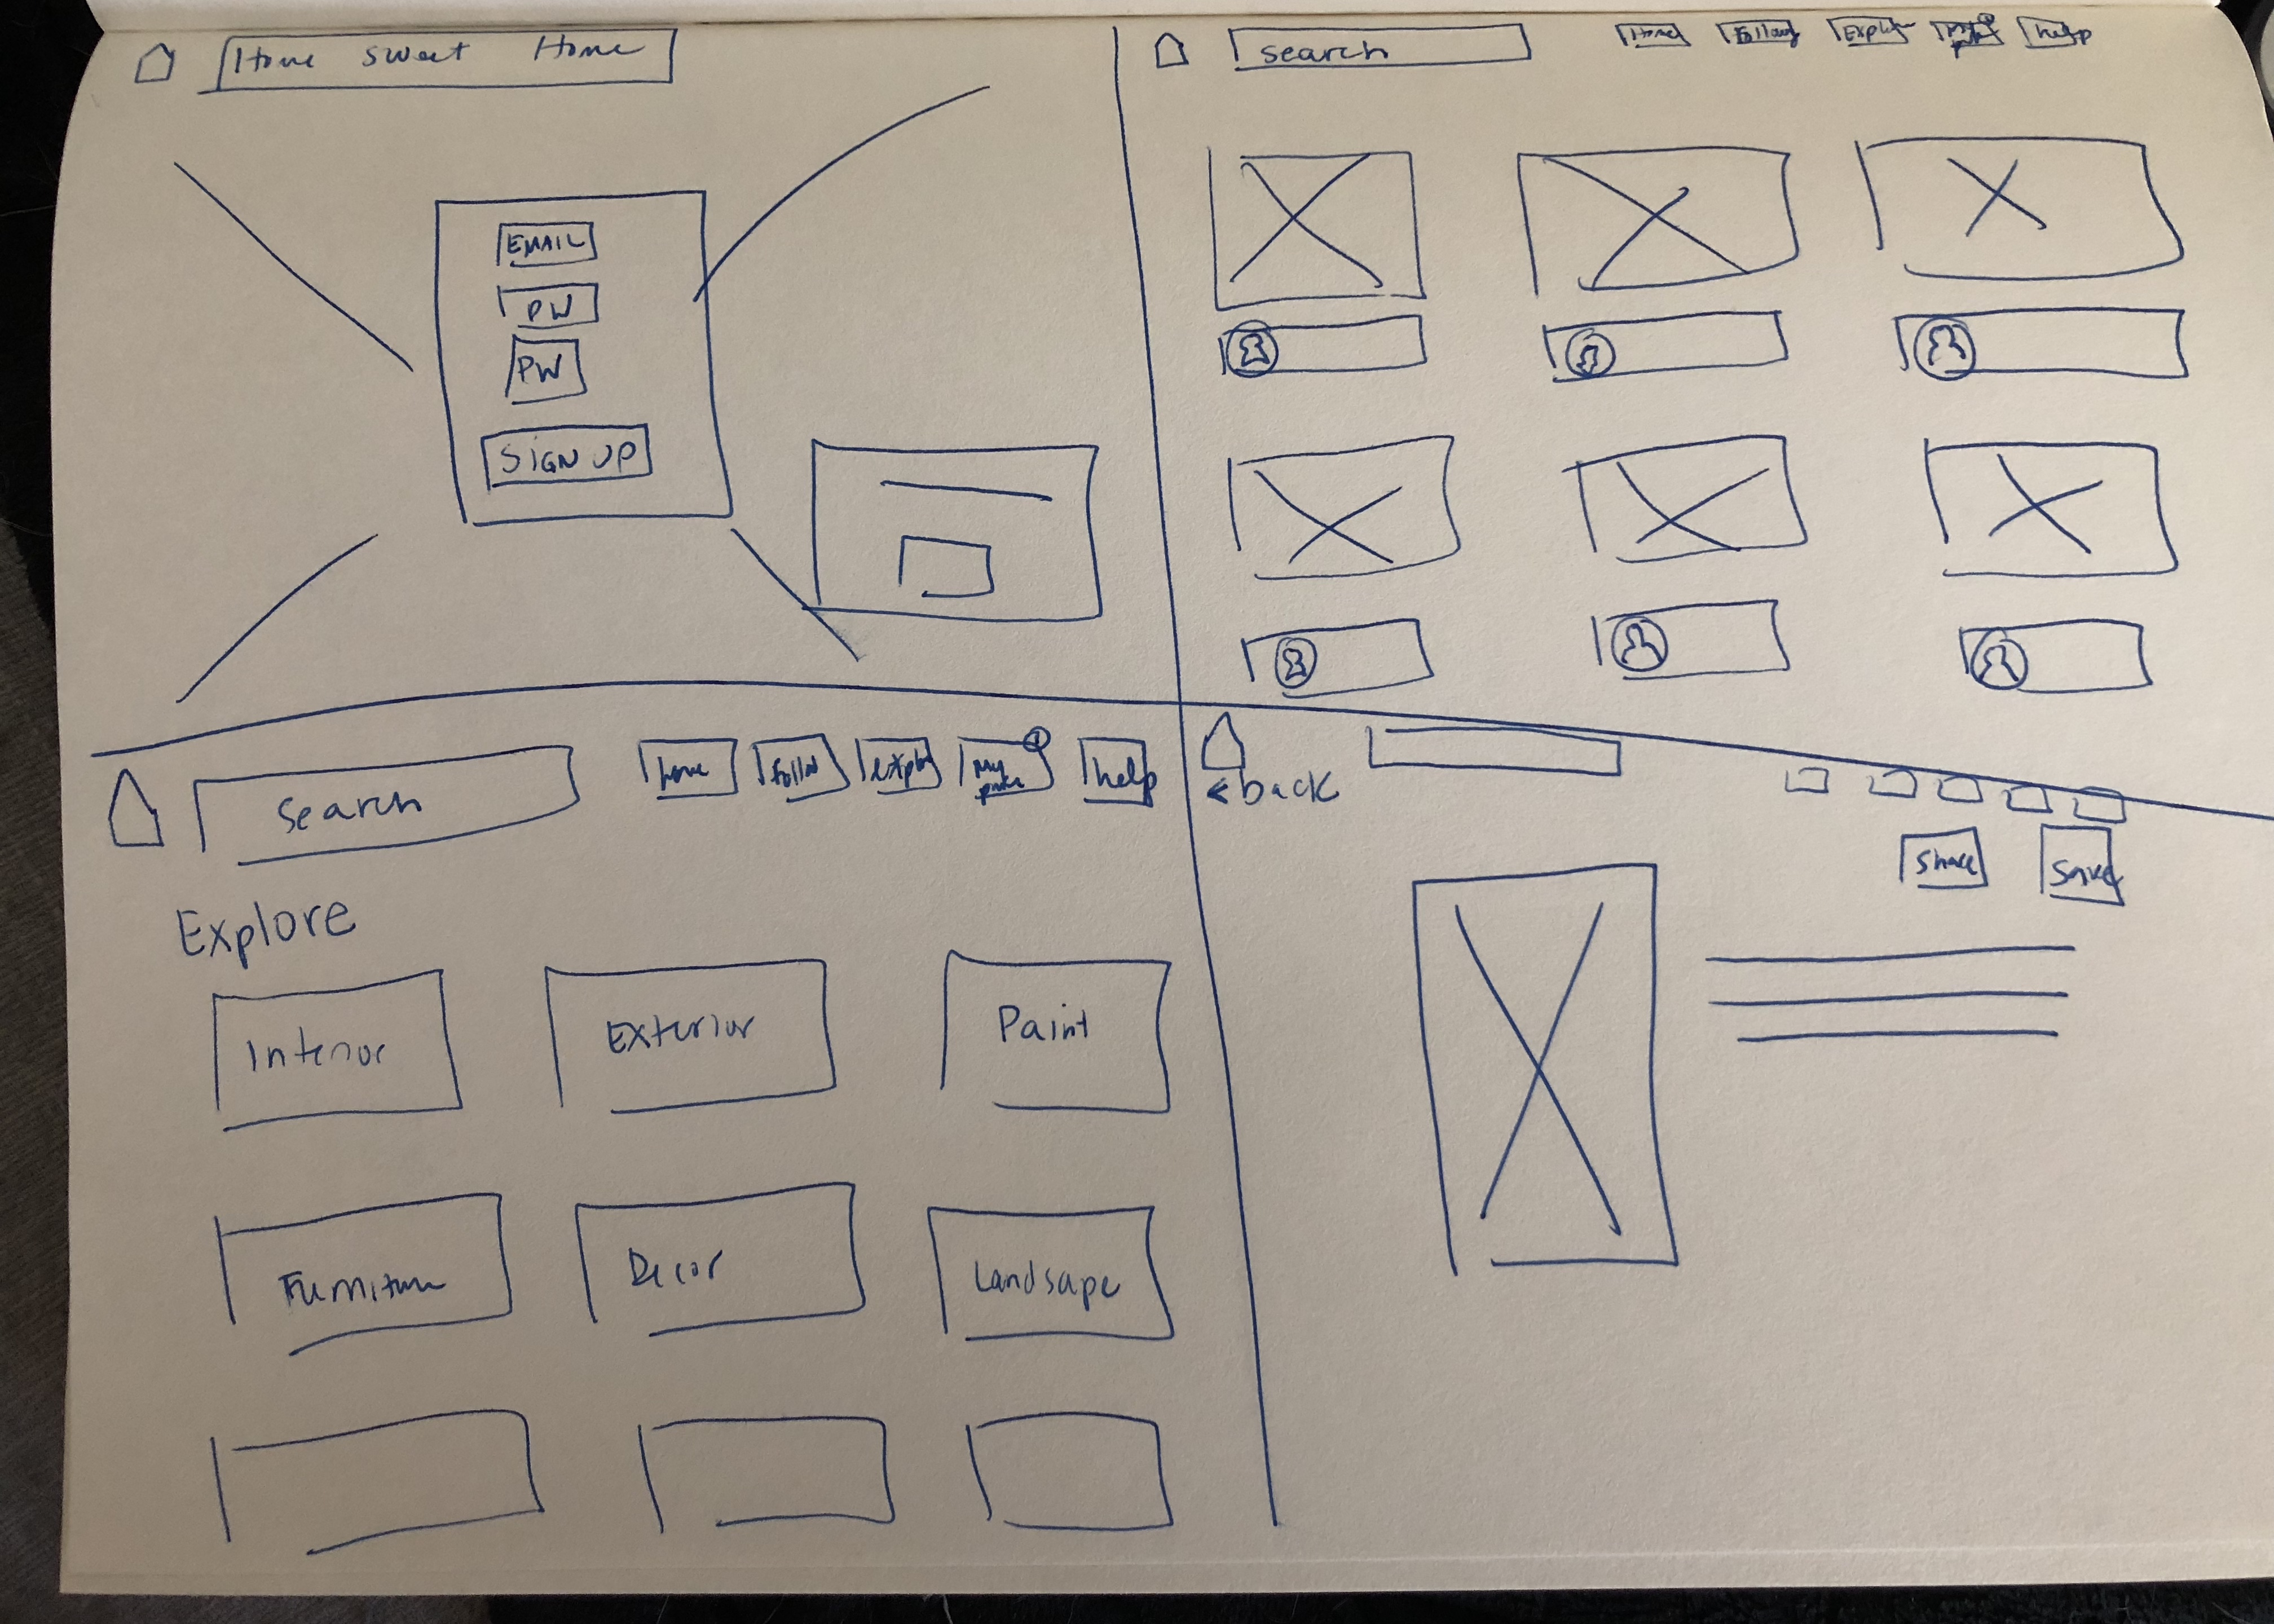 Home sweet Home
EMAIL
PW
PW
SIGN UP
search Home Follow Explore help
search home follow explo My help
Explore
Interior Exterior Paint
Furniture Decor Landsape
<back
Share Save